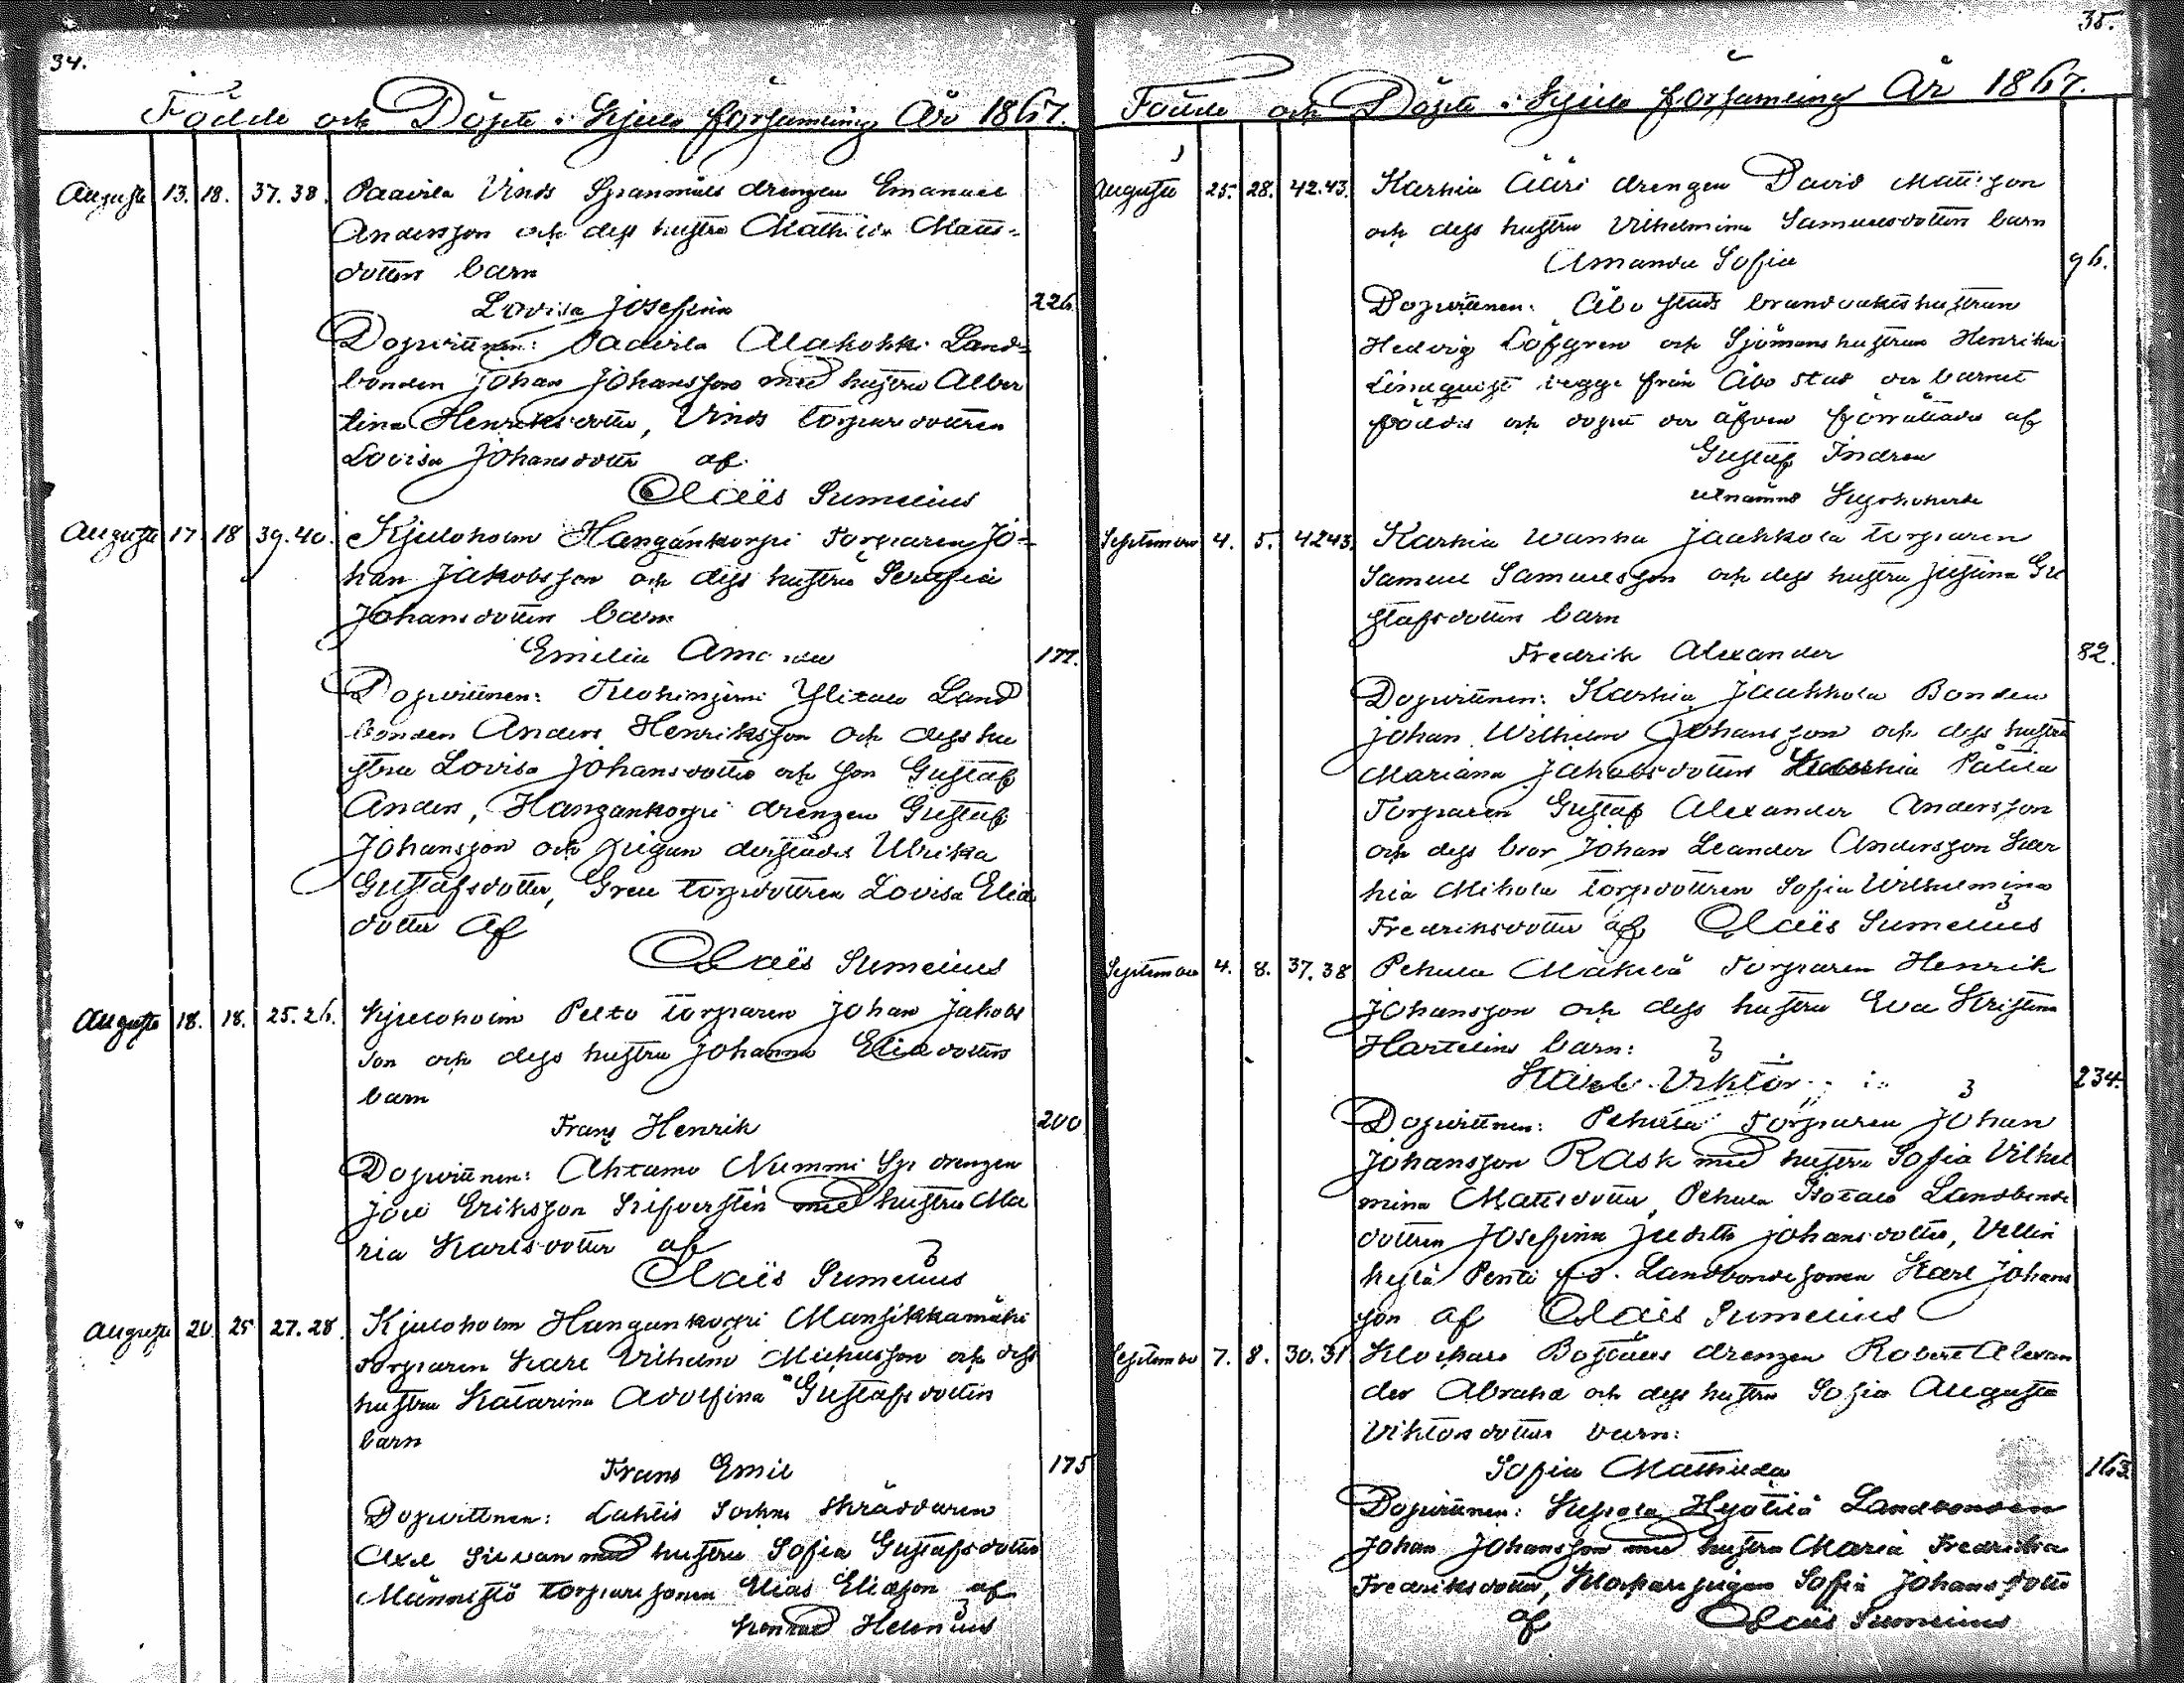 34.
Födde och Döpte i Kjulo församling År 1867.
Augusti 13. 18. 37. 38. Paavila Vinds Spanmåls drengen Emanuel
Andersson och dess hustru Mathilda Matts-
dotters barn
Lovisa Josefina 226
Dopvittnen: Paavila Alakokki Land-
bonden Johan Johansson med hustru Alber
tina Henriksdotter, Vinds torpare dottren
Lovisa Johansdotter af
Claës Sumelius
Augusti 17 18 39. 40. Kjuloholm Hangankorpi Torparen Jo-
han Jakobsson och dess hustru Serafia
Johansdotters barn
Emilia Amanda 177.
Dopvittnen: Ylitalo Land
bonden Anders Henriksson och dess hu
stru Lovisa Johansdotter och son Gustaf
Anders, Hangankorpi drengen Gustaf
Johansson och pigan derstädes Ulrika
Gustafsdotter, torpdottren Lovisa Elia
dotter af
Claës Sumelius
Augusti 18. 18. 25. 26. Kjuloholm Pelto torparen Johan Jakobs
son och dess hustru Johanna Eliadotters
barn
Frans Henrik 200
Dopvittnen: Ahtamo Nummi drengen
Joel Eriksson Silfversten med hustru Ma
ria Karlsdotter af
Claës Sumelius
Augusti 20 25 27. 28. Kjuloholm Hangankorpi Mansikkamäki
torparen Karl Vilhelm Michelsson och dess
hustru Katarina Adolfina Gustafsdotters
barn
Frans Emil 175
Dopvittnen: Lahtis skräddaren
Axel Silvan med hustru Sofia Gustafsdotter
Männistö torpare sonen Elias Eliasson af
Konrad Helenius
35.
Födde och Döpte i Kjulo församling År 1867.
Augusti 25. 28. 42.43. Karhia Ääri drengen David Mattsson
och dess hustru Vilhelmina Samuelsdotters barn
Amanda Sofia 96.
Dopvittnen: Åbo stads brandvaktshustrun
Hedvig Löfgren och Sjömanshustrun Henrika
Lindquist begge från Åbo stad der barnet
föddes och dopet der äfven förrättades af
Gustaf Indren
utnämnd Kyrkoherde
September 4. 5. 42 43. Karhia Wanha Jaakkola torparen
Samuel Samuelsson och dess hustru Justina Gu
stafsdotters barn
Fredrik Alexander 82.
Dopvittnen: Karhia Jaakkola Bonden
Johan Wilhelm Johansson och dess hustru
Mariana Jakobsdotter, Karhia Pätilä
Torparen Gustaf Alexander Andersson
och dess bror Johan Leander Andersson Kar
hia Mikola torpdottren Sofia Wilhelmina
Fredriksdotter af Claës Sumelius
September 4. 8. 37. 38 Pehula Mäkilä Torparen Henrik
Johansson och dess hustru Eva Kristina
Hartelins barn:
Karl Viktor 234.
Dopvittnen: Pehula Torparen Johan
Johansson Rask med hustru Sofia Vilhel
mina Mattsdotter, Pehula Isotalo Landbonde
dottren Josefina Judith Johansdotter, Vellin
kylä Penti Landbondesonen Karl Johans
son af Claës Sumelius
September 7. 8. 30. 31 Klockars Boställes drengen Robert Alexan
der Abraha och dess hustru Sofia Augusta
Viktorsdotters barn:
Sofia Mathilda 163.
Dopvittnen: Hyötilä Landbonden
Johan Johansson med hustru Maria Fredrika
Fredriksdotter, Klockare pigan Sofia Johansdotter
af Claës Sumelius